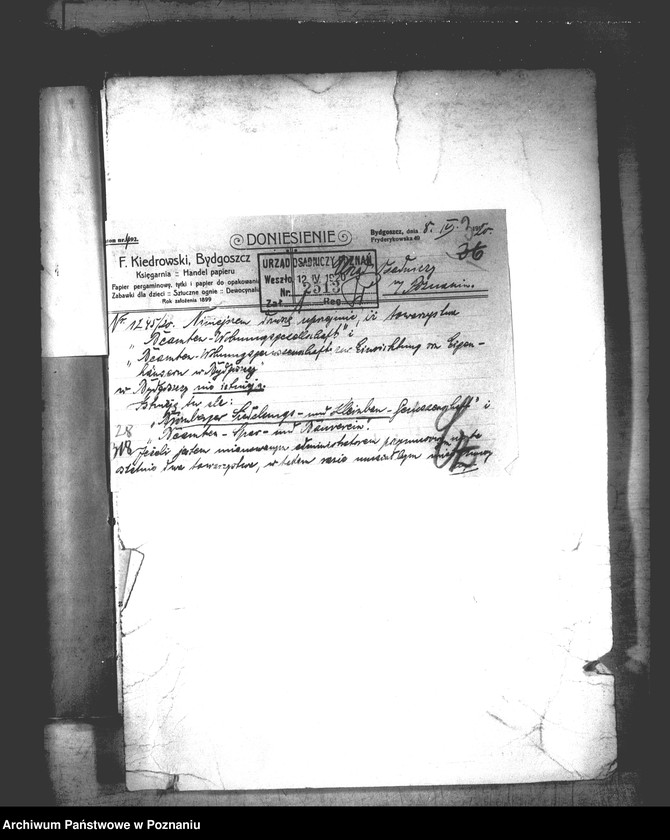 DONIESIENIE
Bydgoszcz, dnia 8. IV. 1920.
Fryderykowska 40
36
F. Kiedrowski, Bydgoszcz
Księgarnia :: Handel papieru
Papier pergaminowy, tytki i papier do opakowania
Zabawki dla dzieci :: Sztuczne ognie :: Dewocynalia
Rok założenia 1899
URZĄD OSADNICZY POZNAŃ
Weszło 12 IV 1920
Nr. 2513
Zał. Reg.
Urząd Osadniczy
w Poznaniu.
Nr. 1245/20. Niniejszem donoszę uprzejmie, iż towarzystwa
"Beamten-Wohnungsgesellschaft" i
"Beamten-Wohnungsgenossenschaft zur Einrichtung von Eigen-
häusern w Bydgoszczy"
w Bydgoszczy nie istnieją.
Istnieją tu ale:
"Bromberger Siedelungs- und Kleinbau-Genossenschaft" i
"Beamten-Spar- und Bauverein".
28
Jeżeli jestem mianowanym administratorem przymusowym na te
ostatnie dwa towarzystwa, w takim razie
Archiwum Państwowe w Poznaniu